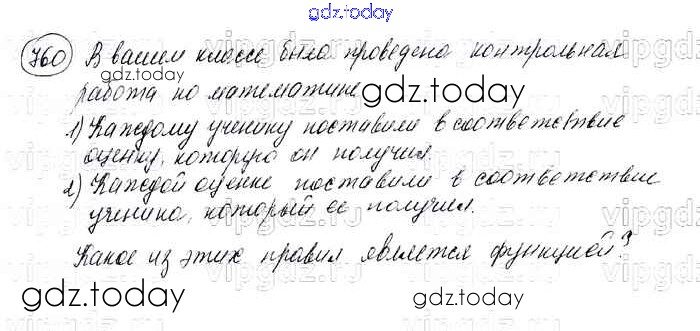 gdz.today
760 В вашем классе была проведена контрольная
работа по математике
gdz.today
gdz.today
1) Каждому ученику поставили в соответствие
оценку, которую он получил.
2) Каждой оценке поставили в соответствие
ученика, который её получил.
Какое из этих правил является функцией?
gdz.today
gdz.today